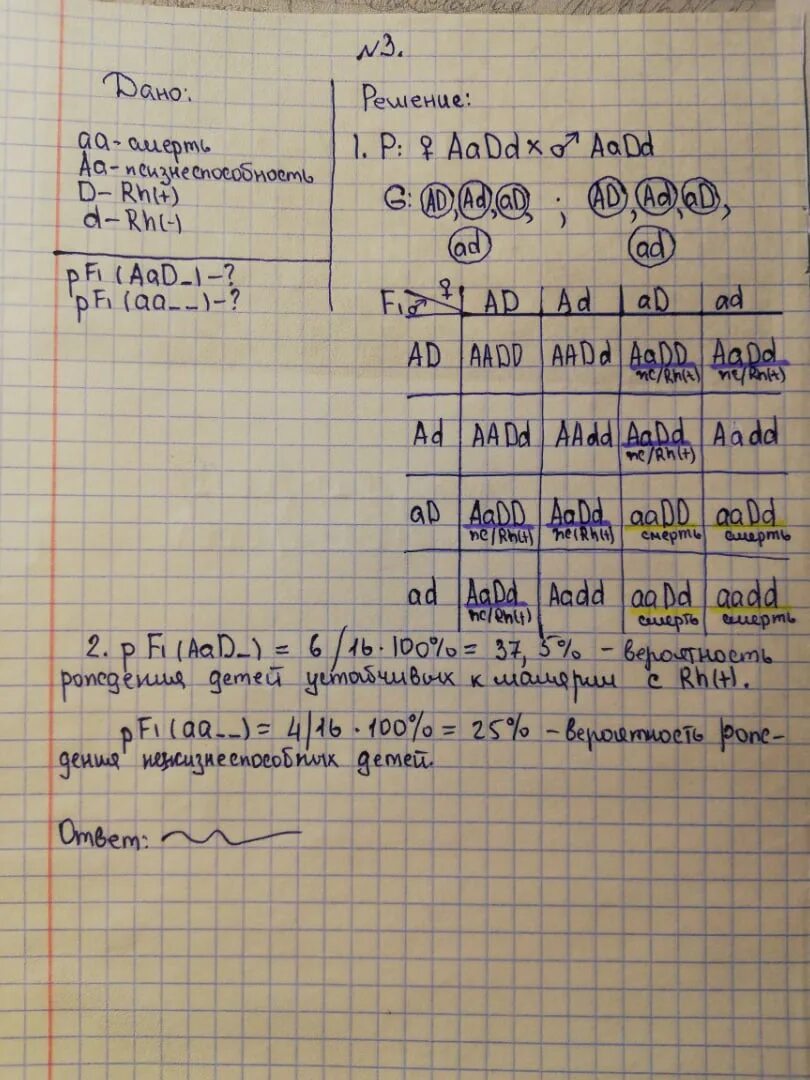 №3.
Дано:
аа- смерть
Аа- жизнеспособность
D- Rh(+)
d- Rh(-)
pF₁ (AaD_) -?
pF₁ (aa_ _) -?
Решение:
1. P: ♀ AaDd × ♂ AaDd
G: AD, Ad, aD, ; AD, Ad, aD,
ad ad
F₁ ♂ ♀ AD Ad aD ad
AD AADD AADd AaDD AaDd
жс/Rh(+) жс/Rh(+)
Ad AADd AAdd AaDd Aadd
жс/Rh(+)
aD AaDD AaDd aaDD aaDd
жс/Rh(+) жс(Rh(+) смерть смерть
ad AaDd Aadd aaDd aadd
жс/Rh(+) смерть смерть
2. p F₁ (AaD_) = 6/16 · 100% = 37,5% - вероятность
рождения детей устойчивых к малярии с Rh(+).
pF₁ (aa_ _) = 4/16 · 100% = 25% - вероятность рож-
дения нежизнеспособных детей.
Ответ: